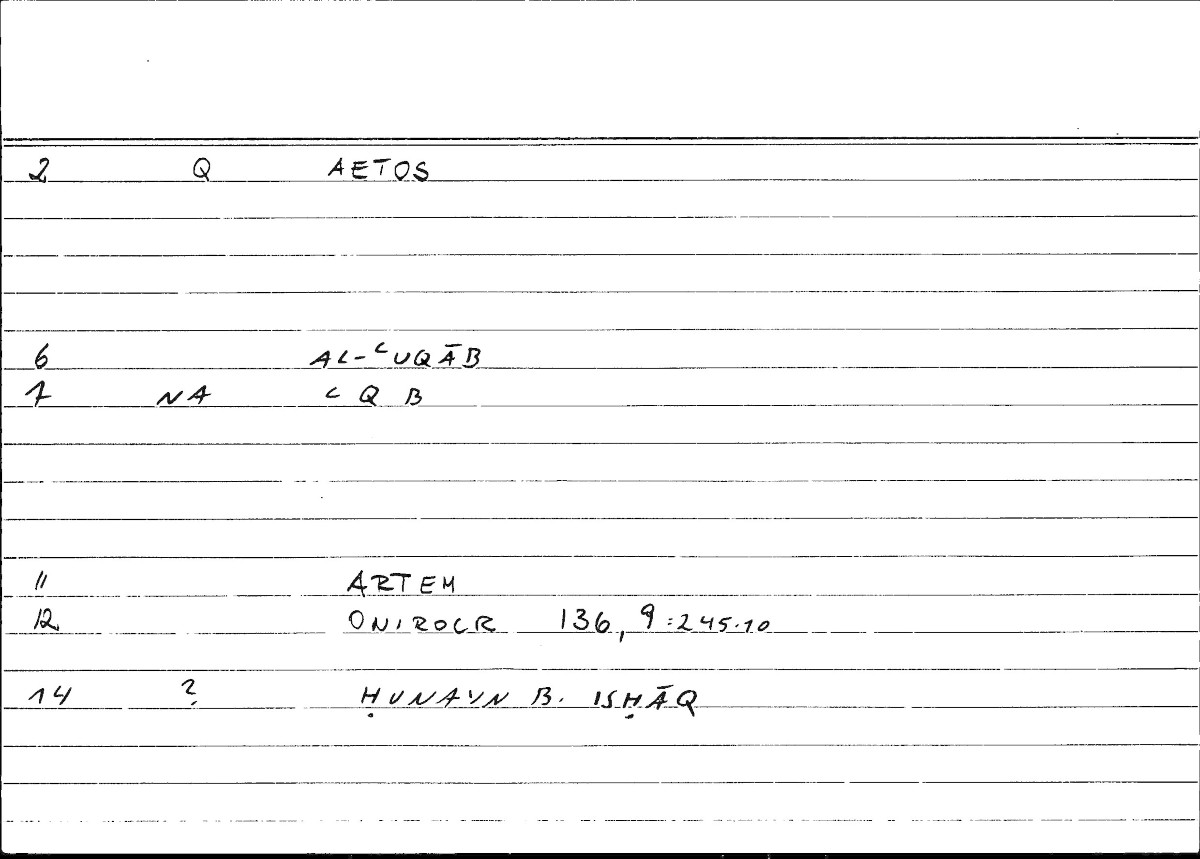 2 Q AETOS
6 AL-ʿUQĀB
7 NA ʿ Q B
11 ARTEM
12 ONIROCR 136, 9:245.10
14 ? ḤUNAYN B. ISḤĀQ